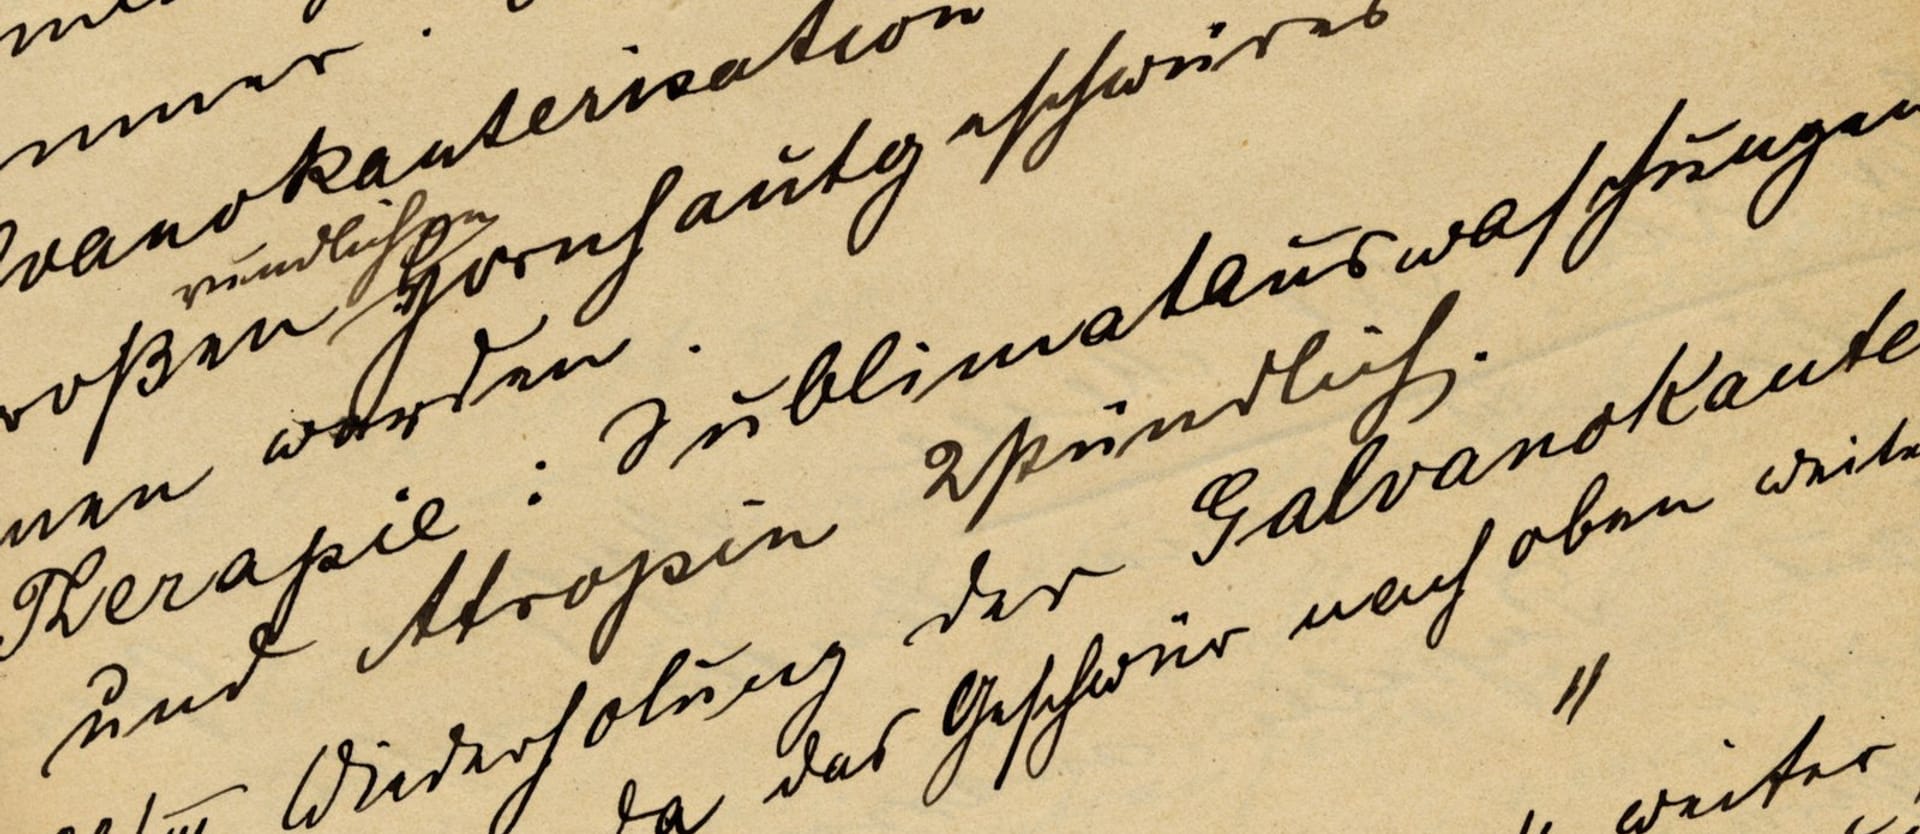 lvanokauterisation
rundlichen
roßen Hornhautgeschwüres
nen worden.
Therapie: Sublimatauswaschungen
und Atropin 2stündlich.
Wiederholung der Galvanokaute
da das Geschwür nach oben weite
"
weiter